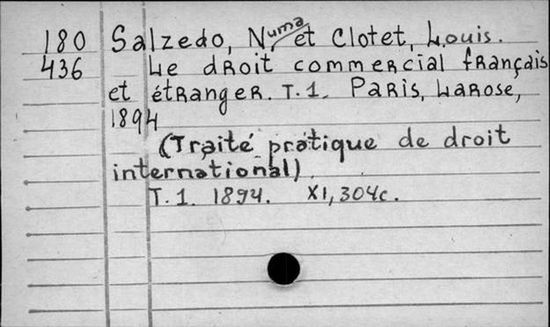 180 Salzedo, Numa et Clotet, Louis.
436 Le droit commercial français
et étranger. T.1. Paris, Larose,
1894
(Traité pratique de droit
international).
T.1. 1894. XI, 304c.